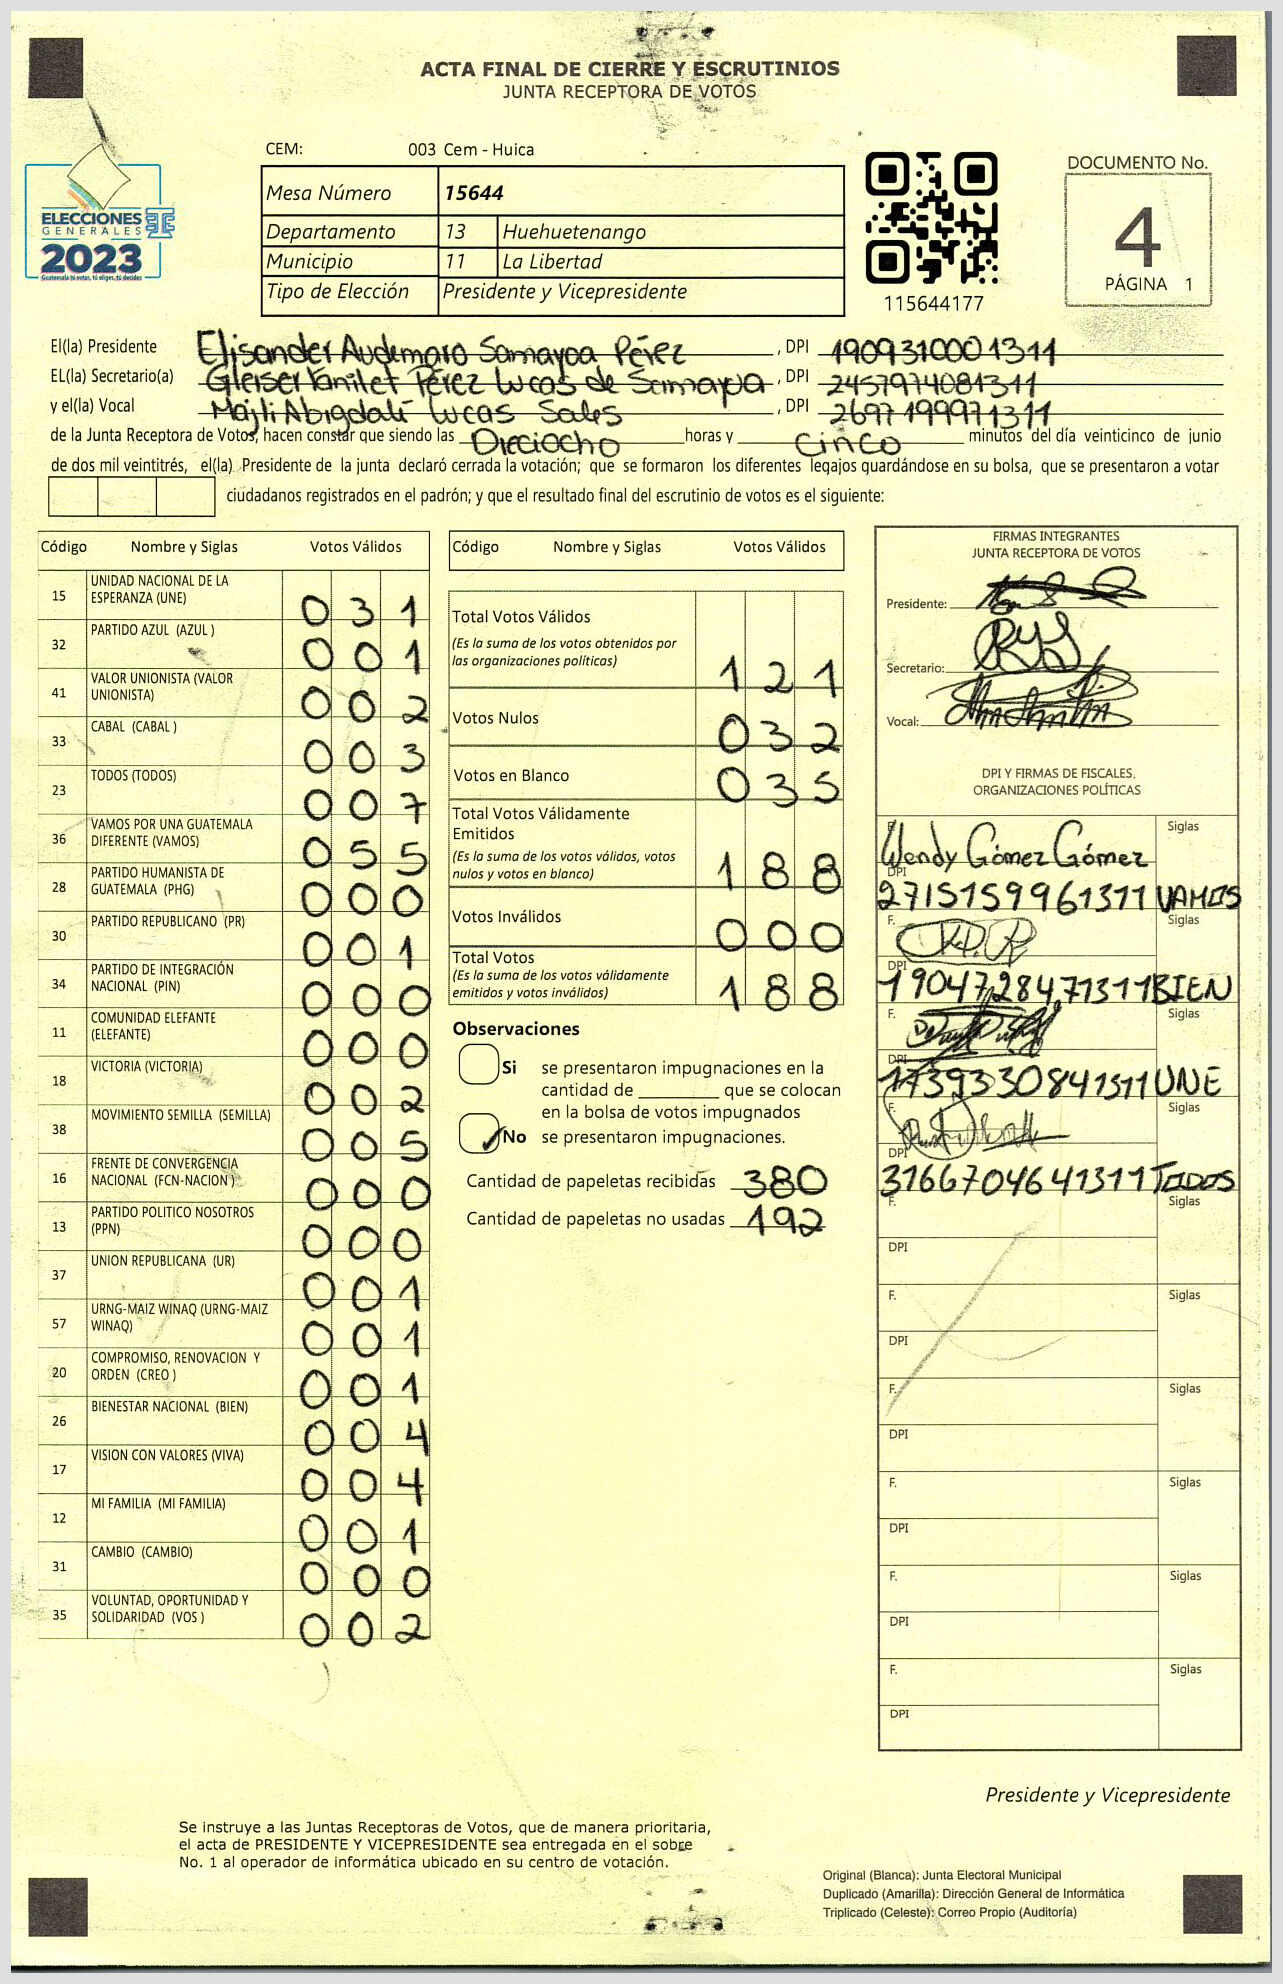 ACTA FINAL DE CIERRE Y ESCRUTINIOS
JUNTA RECEPTORA DE VOTOS
CEM: 003 Cem - Huica
Mesa Número 15644
Departamento 13 Huehuetenango
Municipio 11 La Libertad
Tipo de Elección Presidente y Vicepresidente
115644177
DOCUMENTO No.
4
PÁGINA 1
ELECCIONES
GENERALES
2023
Guatemala tú votas, tú eliges, tú decides
El(la) Presidente Elisander Audemaro Samayoa Pérez , DPI 1909310001311
EL(la) Secretario(a) Gleiser Yamilet Pérez Lucas de Samayoa , DPI 2457974081311
y el(la) Vocal Majli Abigdali Lucas Sales , DPI 2697199971311
de la Junta Receptora de Votos, hacen constar que siendo las Dieciocho horas y cinco minutos del día veinticinco de junio
de dos mil veintitrés, el(la) Presidente de la junta declaró cerrada la votación; que se formaron los diferentes legajos guardándose en su bolsa, que se presentaron a votar
ciudadanos registrados en el padrón; y que el resultado final del escrutinio de votos es el siguiente:
Código Nombre y Siglas Votos Válidos
15 UNIDAD NACIONAL DE LA ESPERANZA (UNE) 031
32 PARTIDO AZUL (AZUL ) 001
41 VALOR UNIONISTA (VALOR UNIONISTA) 002
33 CABAL (CABAL ) 003
23 TODOS (TODOS) 007
36 VAMOS POR UNA GUATEMALA DIFERENTE (VAMOS) 055
28 PARTIDO HUMANISTA DE GUATEMALA (PHG) 000
30 PARTIDO REPUBLICANO (PR) 001
34 PARTIDO DE INTEGRACIÓN NACIONAL (PIN) 000
11 COMUNIDAD ELEFANTE (ELEFANTE) 000
18 VICTORIA (VICTORIA) 002
38 MOVIMIENTO SEMILLA (SEMILLA) 005
16 FRENTE DE CONVERGENCIA NACIONAL (FCN-NACION ) 000
13 PARTIDO POLITICO NOSOTROS (PPN) 000
37 UNION REPUBLICANA (UR) 001
57 URNG-MAIZ WINAQ (URNG-MAIZ WINAQ) 001
20 COMPROMISO, RENOVACION Y ORDEN (CREO ) 001
26 BIENESTAR NACIONAL (BIEN) 004
17 VISION CON VALORES (VIVA) 004
12 MI FAMILIA (MI FAMILIA) 001
31 CAMBIO (CAMBIO) 000
35 VOLUNTAD, OPORTUNIDAD Y SOLIDARIDAD (VOS ) 002
Código Nombre y Siglas Votos Válidos
Total Votos Válidos
(Es la suma de los votos obtenidos por
las organizaciones políticas) 121
Votos Nulos 032
Votos en Blanco 035
Total Votos Válidamente
Emitidos
(Es la suma de los votos válidos, votos
nulos y votos en blanco) 188
Votos Inválidos 000
Total Votos
(Es la suma de los votos válidamente
emitidos y votos inválidos) 188
Observaciones
Si se presentaron impugnaciones en la
cantidad de que se colocan
en la bolsa de votos impugnados
No se presentaron impugnaciones.
Cantidad de papeletas recibidas 380
Cantidad de papeletas no usadas 192
FIRMAS INTEGRANTES
JUNTA RECEPTORA DE VOTOS
Presidente:
Secretario:
Vocal:
DPI Y FIRMAS DE FISCALES,
ORGANIZACIONES POLÍTICAS
F. Wendy Gómez Gómez Siglas
DPI 2715159961311 VAMOS
F. Siglas
DPI 1904728471311 BIEN
F. Siglas
DPI 1739330841311 UNE
F. Siglas
DPI 3166704641311 TODOS
F. Siglas
DPI
F. Siglas
DPI
F. Siglas
DPI
F. Siglas
DPI
F. Siglas
DPI
F. Siglas
DPI
Presidente y Vicepresidente
Se instruye a las Juntas Receptoras de Votos, que de manera prioritaria,
el acta de PRESIDENTE Y VICEPRESIDENTE sea entregada en el sobre
No. 1 al operador de informática ubicado en su centro de votación.
Original (Blanca): Junta Electoral Municipal
Duplicado (Amarilla): Dirección General de Informática
Triplicado (Celeste): Correo Propio (Auditoría)